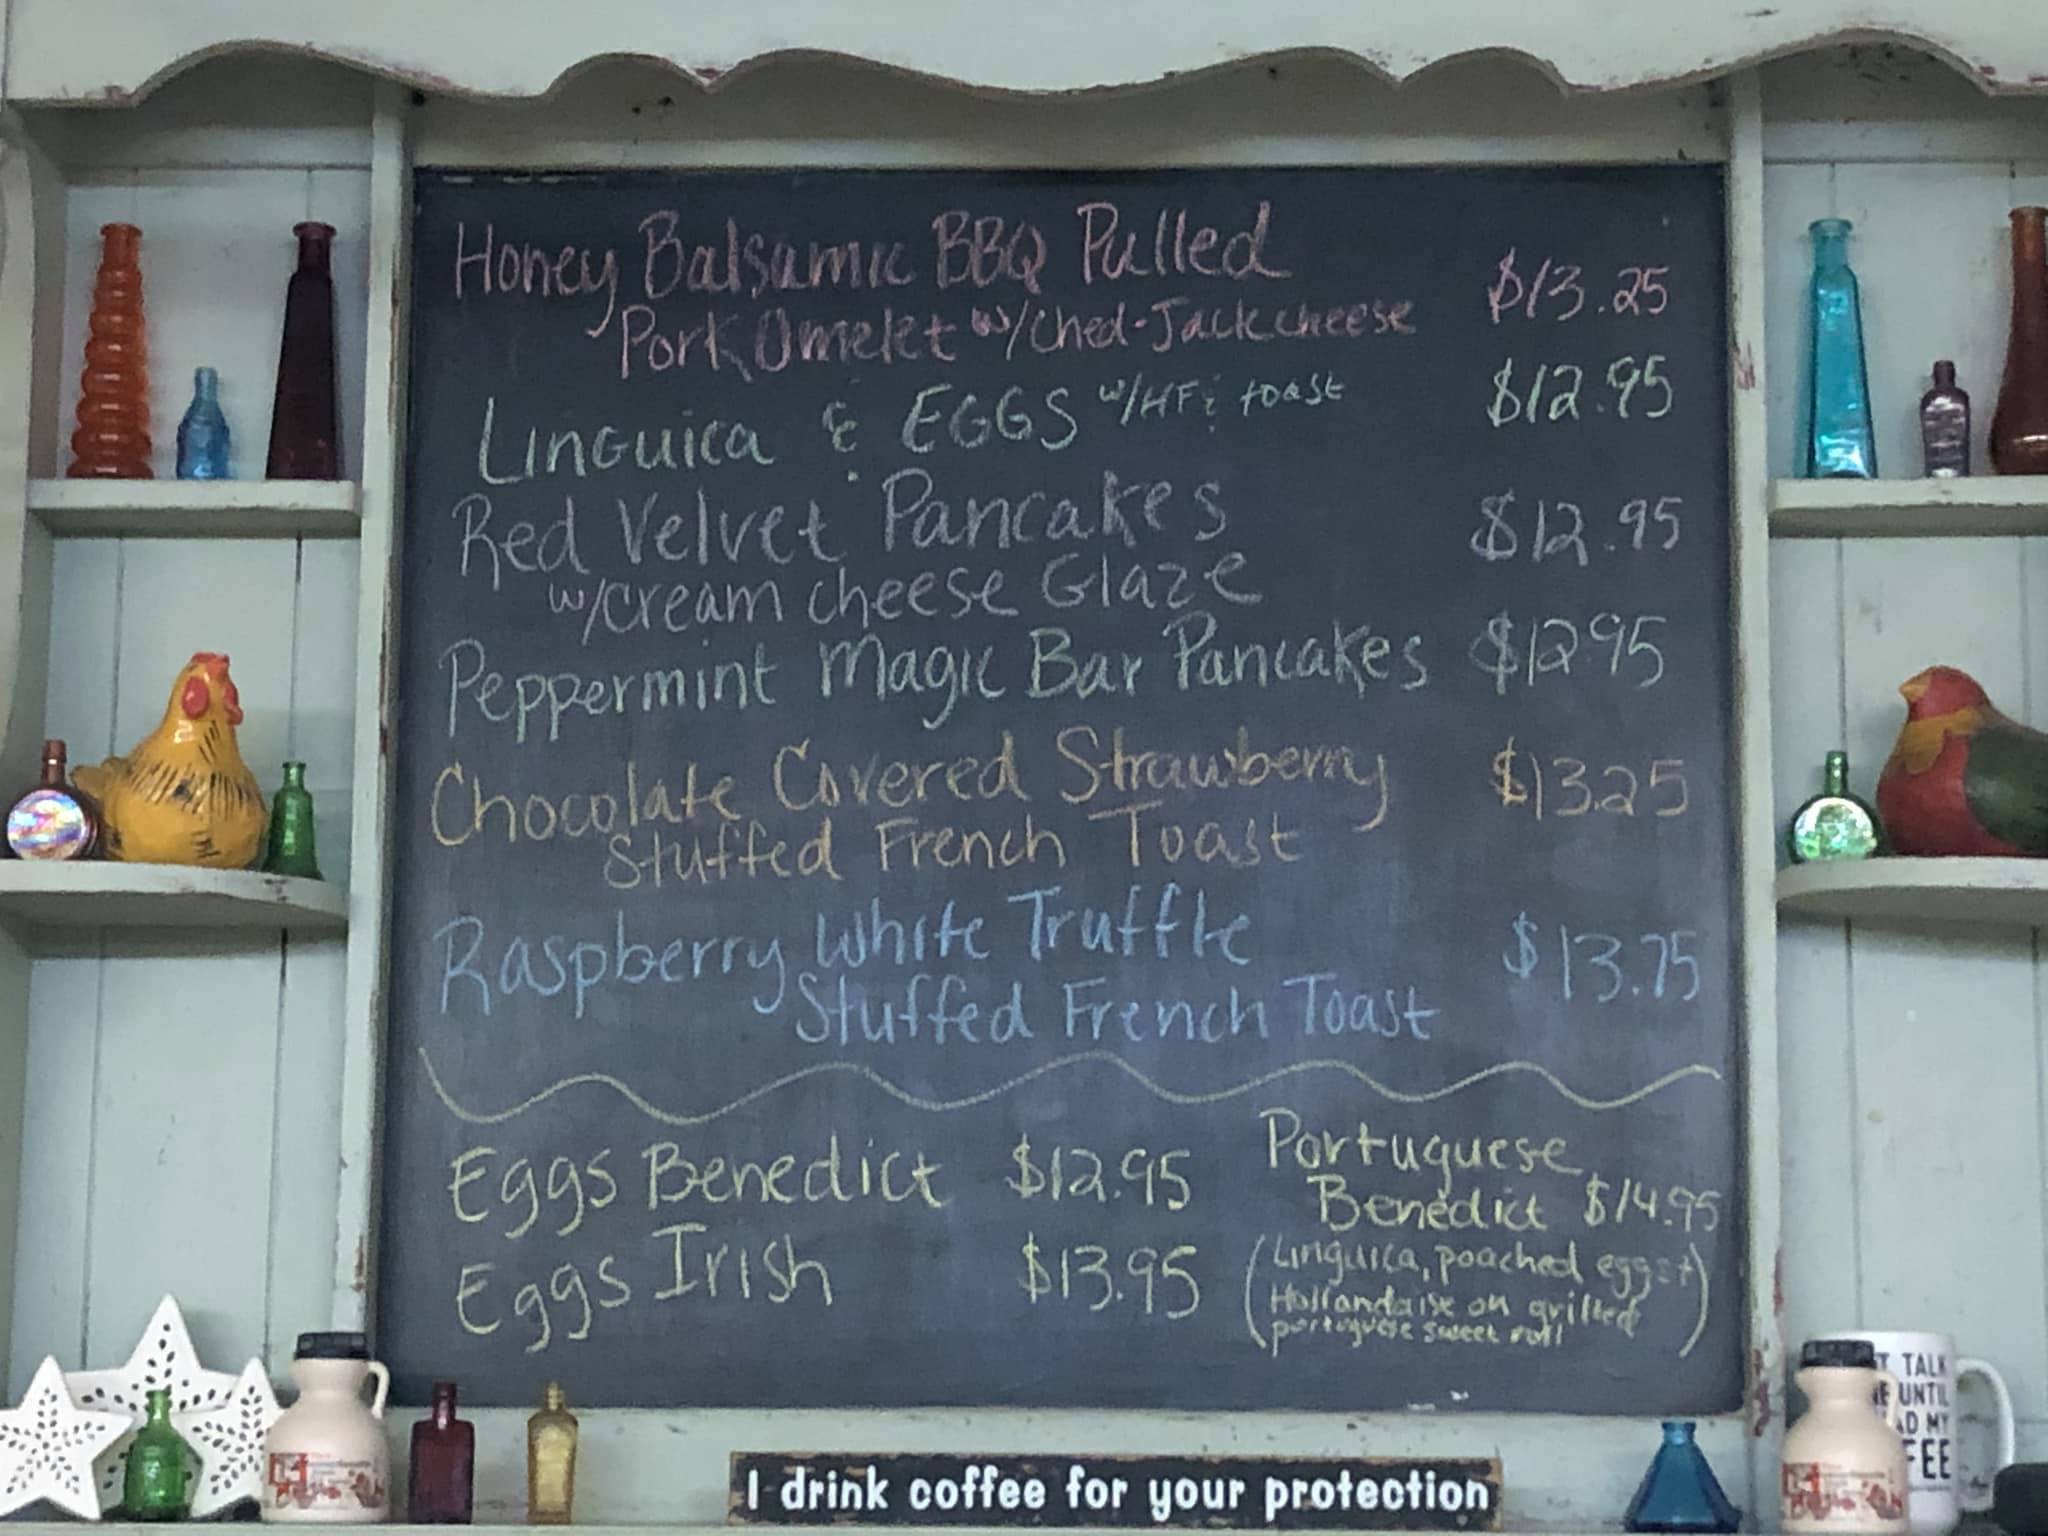 Honey Balsamic BBQ Pulled
Pork Omelet w/Ched-Jack cheese $13.25
LINGUICA & EGGS w/HF & toast $12.95
Red Velvet Pancakes $12.95
w/cream cheese Glaze
Peppermint Magic Bar Pancakes $12.95
Chocolate Covered Strawberry $13.25
Stuffed French Toast
Raspberry White Truffle $13.75
Stuffed French Toast
Eggs Benedict $12.95
Eggs Irish $13.95
Portuguese
Benedict $14.95
(Linguica, poached eggs +
Hollandaise on grilled
portuguese sweet roll)
I drink coffee for your protection
TALK
UNTIL
MY